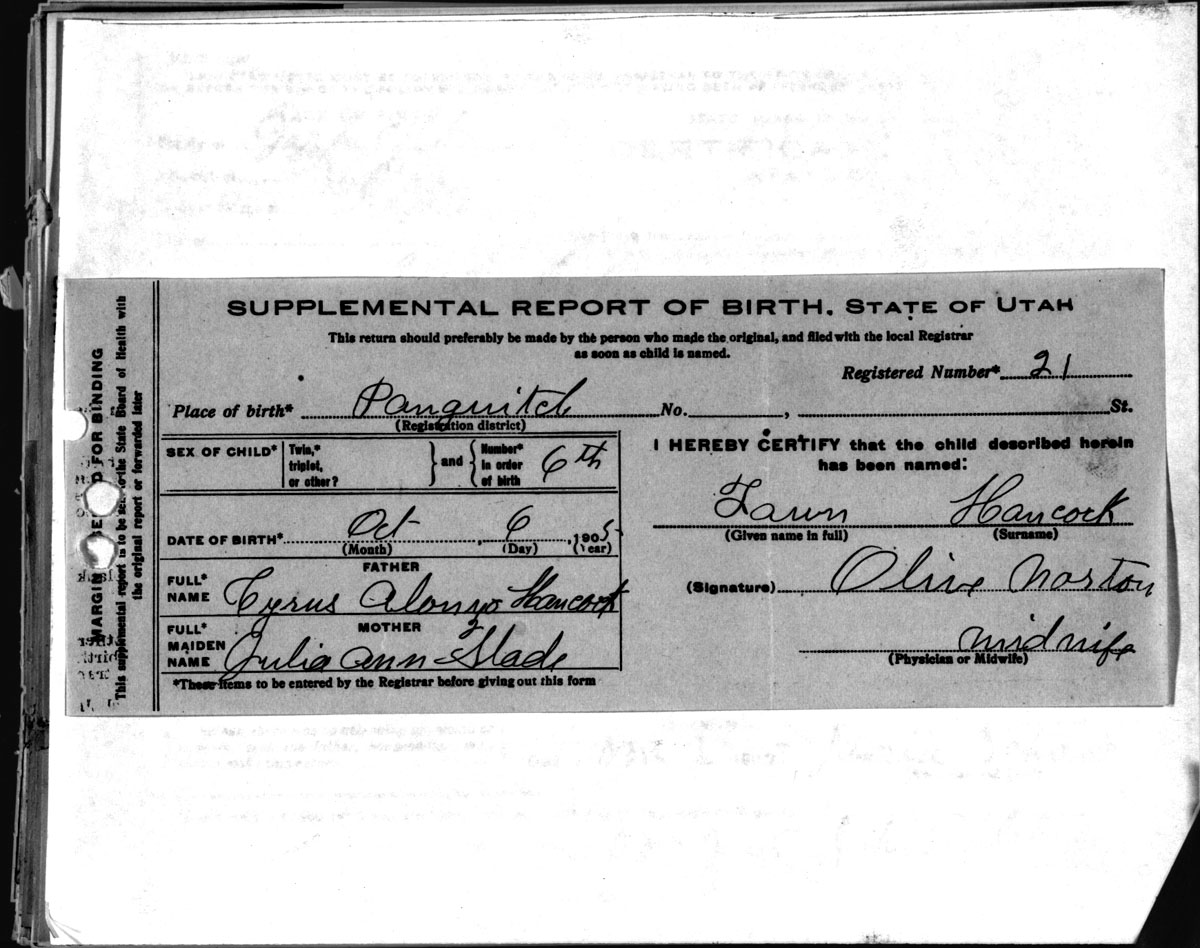 SUPPLEMENTAL REPORT OF BIRTH. STATE OF UTAH
This return should preferably be made by the person who made the original, and filed with the local Registrar
as soon as child is named.
Registered Number* 21
Place of birth* Panguitch No. , St.
(Registration district)
SEX OF CHILD* Twin,* triplet, or other? } and { Number* in order of birth 6th
DATE OF BIRTH* Oct , 6 , 1905
(Month) (Day) (Year)
FATHER
FULL* NAME Cyrus Alonzo Hancock
MOTHER
FULL* MAIDEN NAME Julia Ann Slade
*These items to be entered by the Registrar before giving out this form
I HEREBY CERTIFY that the child described herein
has been named:
Fawn Hancock
(Given name in full) (Surname)
(Signature) Olive Norton
midwife
(Physician or Midwife)
MARGIN RESERVED FOR BINDING
This supplemental report is to be sent to the State Board of Health with
the original report or forwarded later